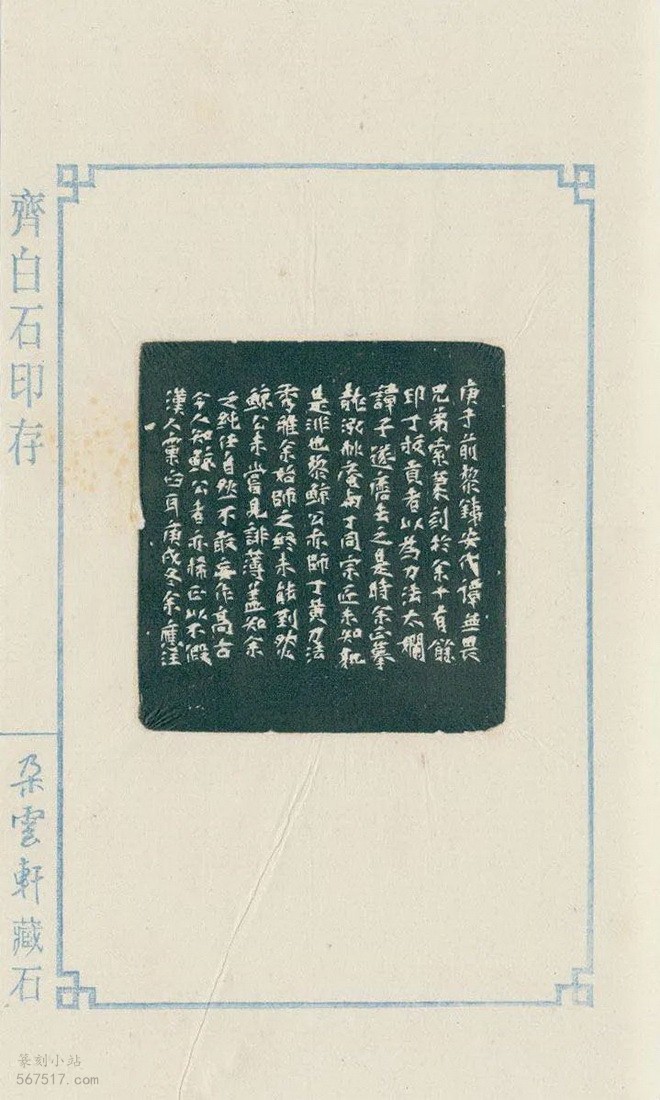 庚子前黎鐵安代譚無畏
兄弟索篆刻於余十有餘
印丁拔貢者以為刀法太爛
譚子遂磨去之是時余正摹
龍泓秋菴與丁同宗匠未知孰
是非也黎鯨公亦師丁黃刀法
秀雅余始師之終未能到然
鯨公未嘗見誹薄蓋知余
之純任自然不敢妄作高古
今人知鯨公者亦稀正以不假
漢人窠臼耳庚戌冬余應汪
齊白石印存
朵雲軒藏石
篆刻小站
567517.com